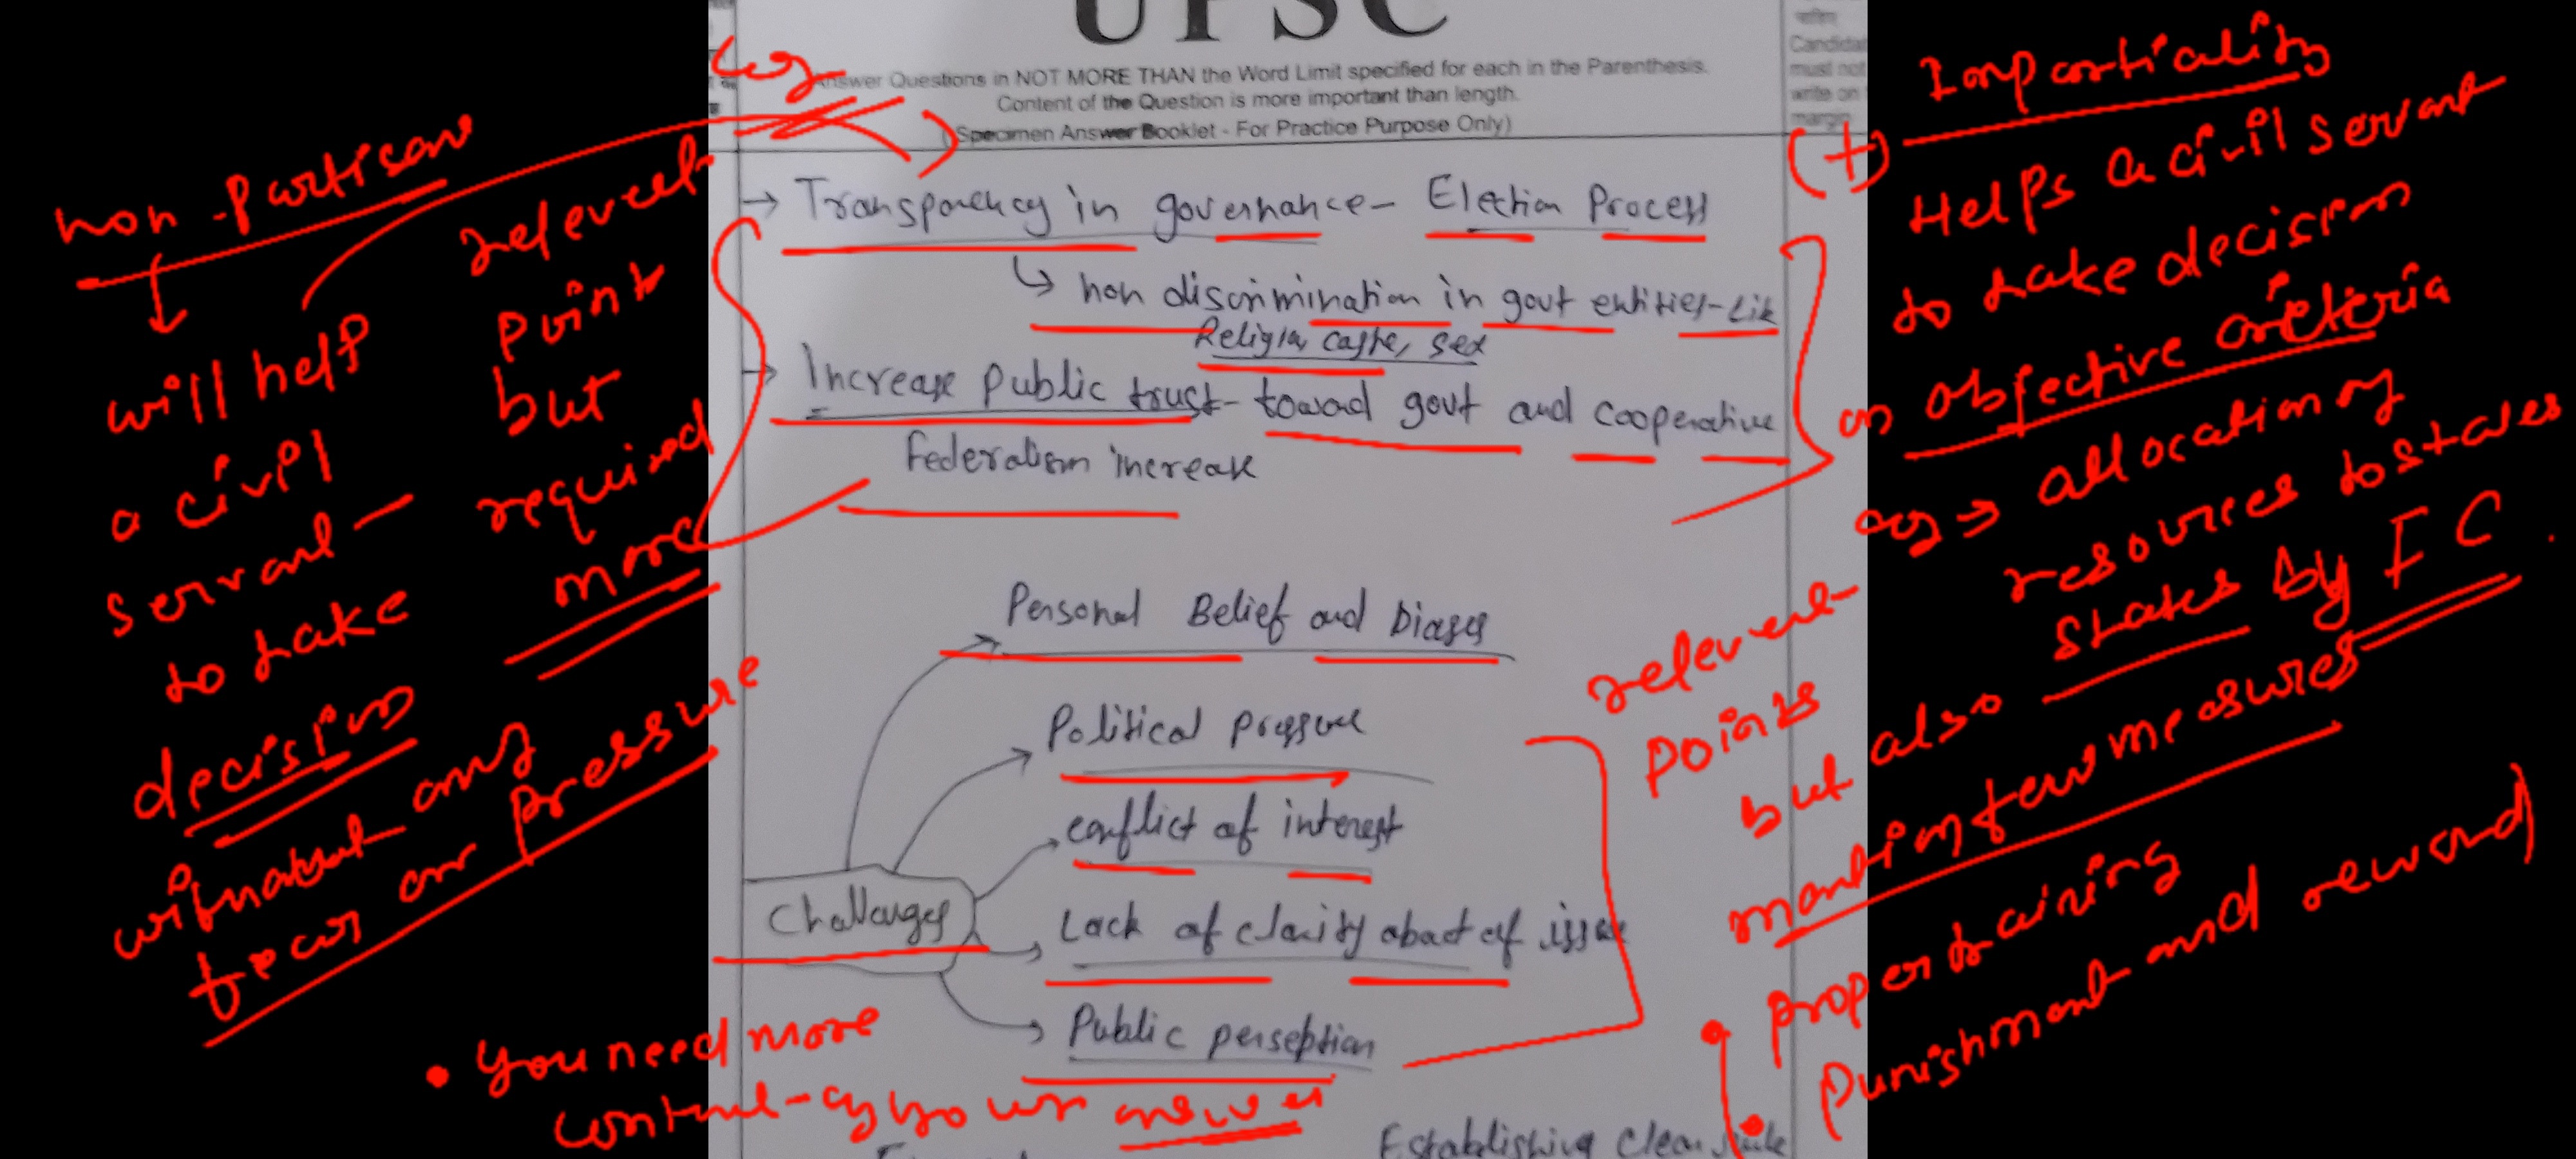 UPSC
Answer Questions in NOT MORE THAN the Word Limit specified for each in the Parenthesis.
Content of the Question is more important than length.
(Specimen Answer Booklet - For Practice Purpose Only)
Candidat
must not
write on
margin
→ Transparency in governance - Election Process
↳ non discrimination in govt entities - Lik
Religin, caste, sex
→ Increase public trust - toward govt and cooperative
Federalism increase
Personal Belief and biases
Political pressure
conflict of interest
Challenges
Lack of clarity about of issue
Public perseption
Establishing clear
non-partisan
↓
will help
a civil
servant
to take
decision
without any
fear or pressure
relevent
point
but
required
more
• you need more
content in your answer
(+) Impartiality
Helps a civil servant
to take decision
on objective creteria
eg → allocation of
resources to states
states by FC
relevent
points
but also
mention few measures
• proper training
• Punishment and reward